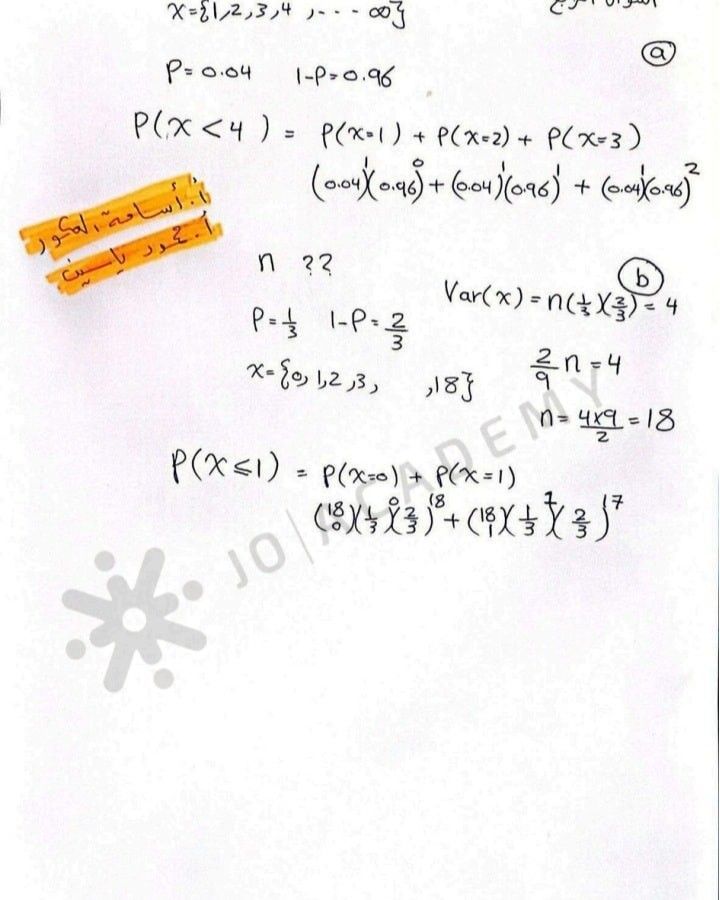 x={1,2,3,4 ,.--- ∞}
a
P=0.04 1-P=0.96
P(x<4) = P(x=1) + P(x=2) + P(x=3)
(0.04)¹(0.96)⁰ + (0.04)¹(0.96)¹ + (0.04)¹(0.96)²
أ. أسامة
أ. محمود ياسين
n ??
b
Var(x) = n(1/3)(2/3) = 4
P=1/3 1-P=2/3
2/9 n = 4
x={0,1,2,3, ,18}
n= 4x9/2 = 18
P(x≤1) = P(x=0) + P(x=1)
(18 0)(1/3)⁰(2/3)¹⁸ + (18 1)(1/3)¹(2/3)¹⁷
JO|ACADEMY